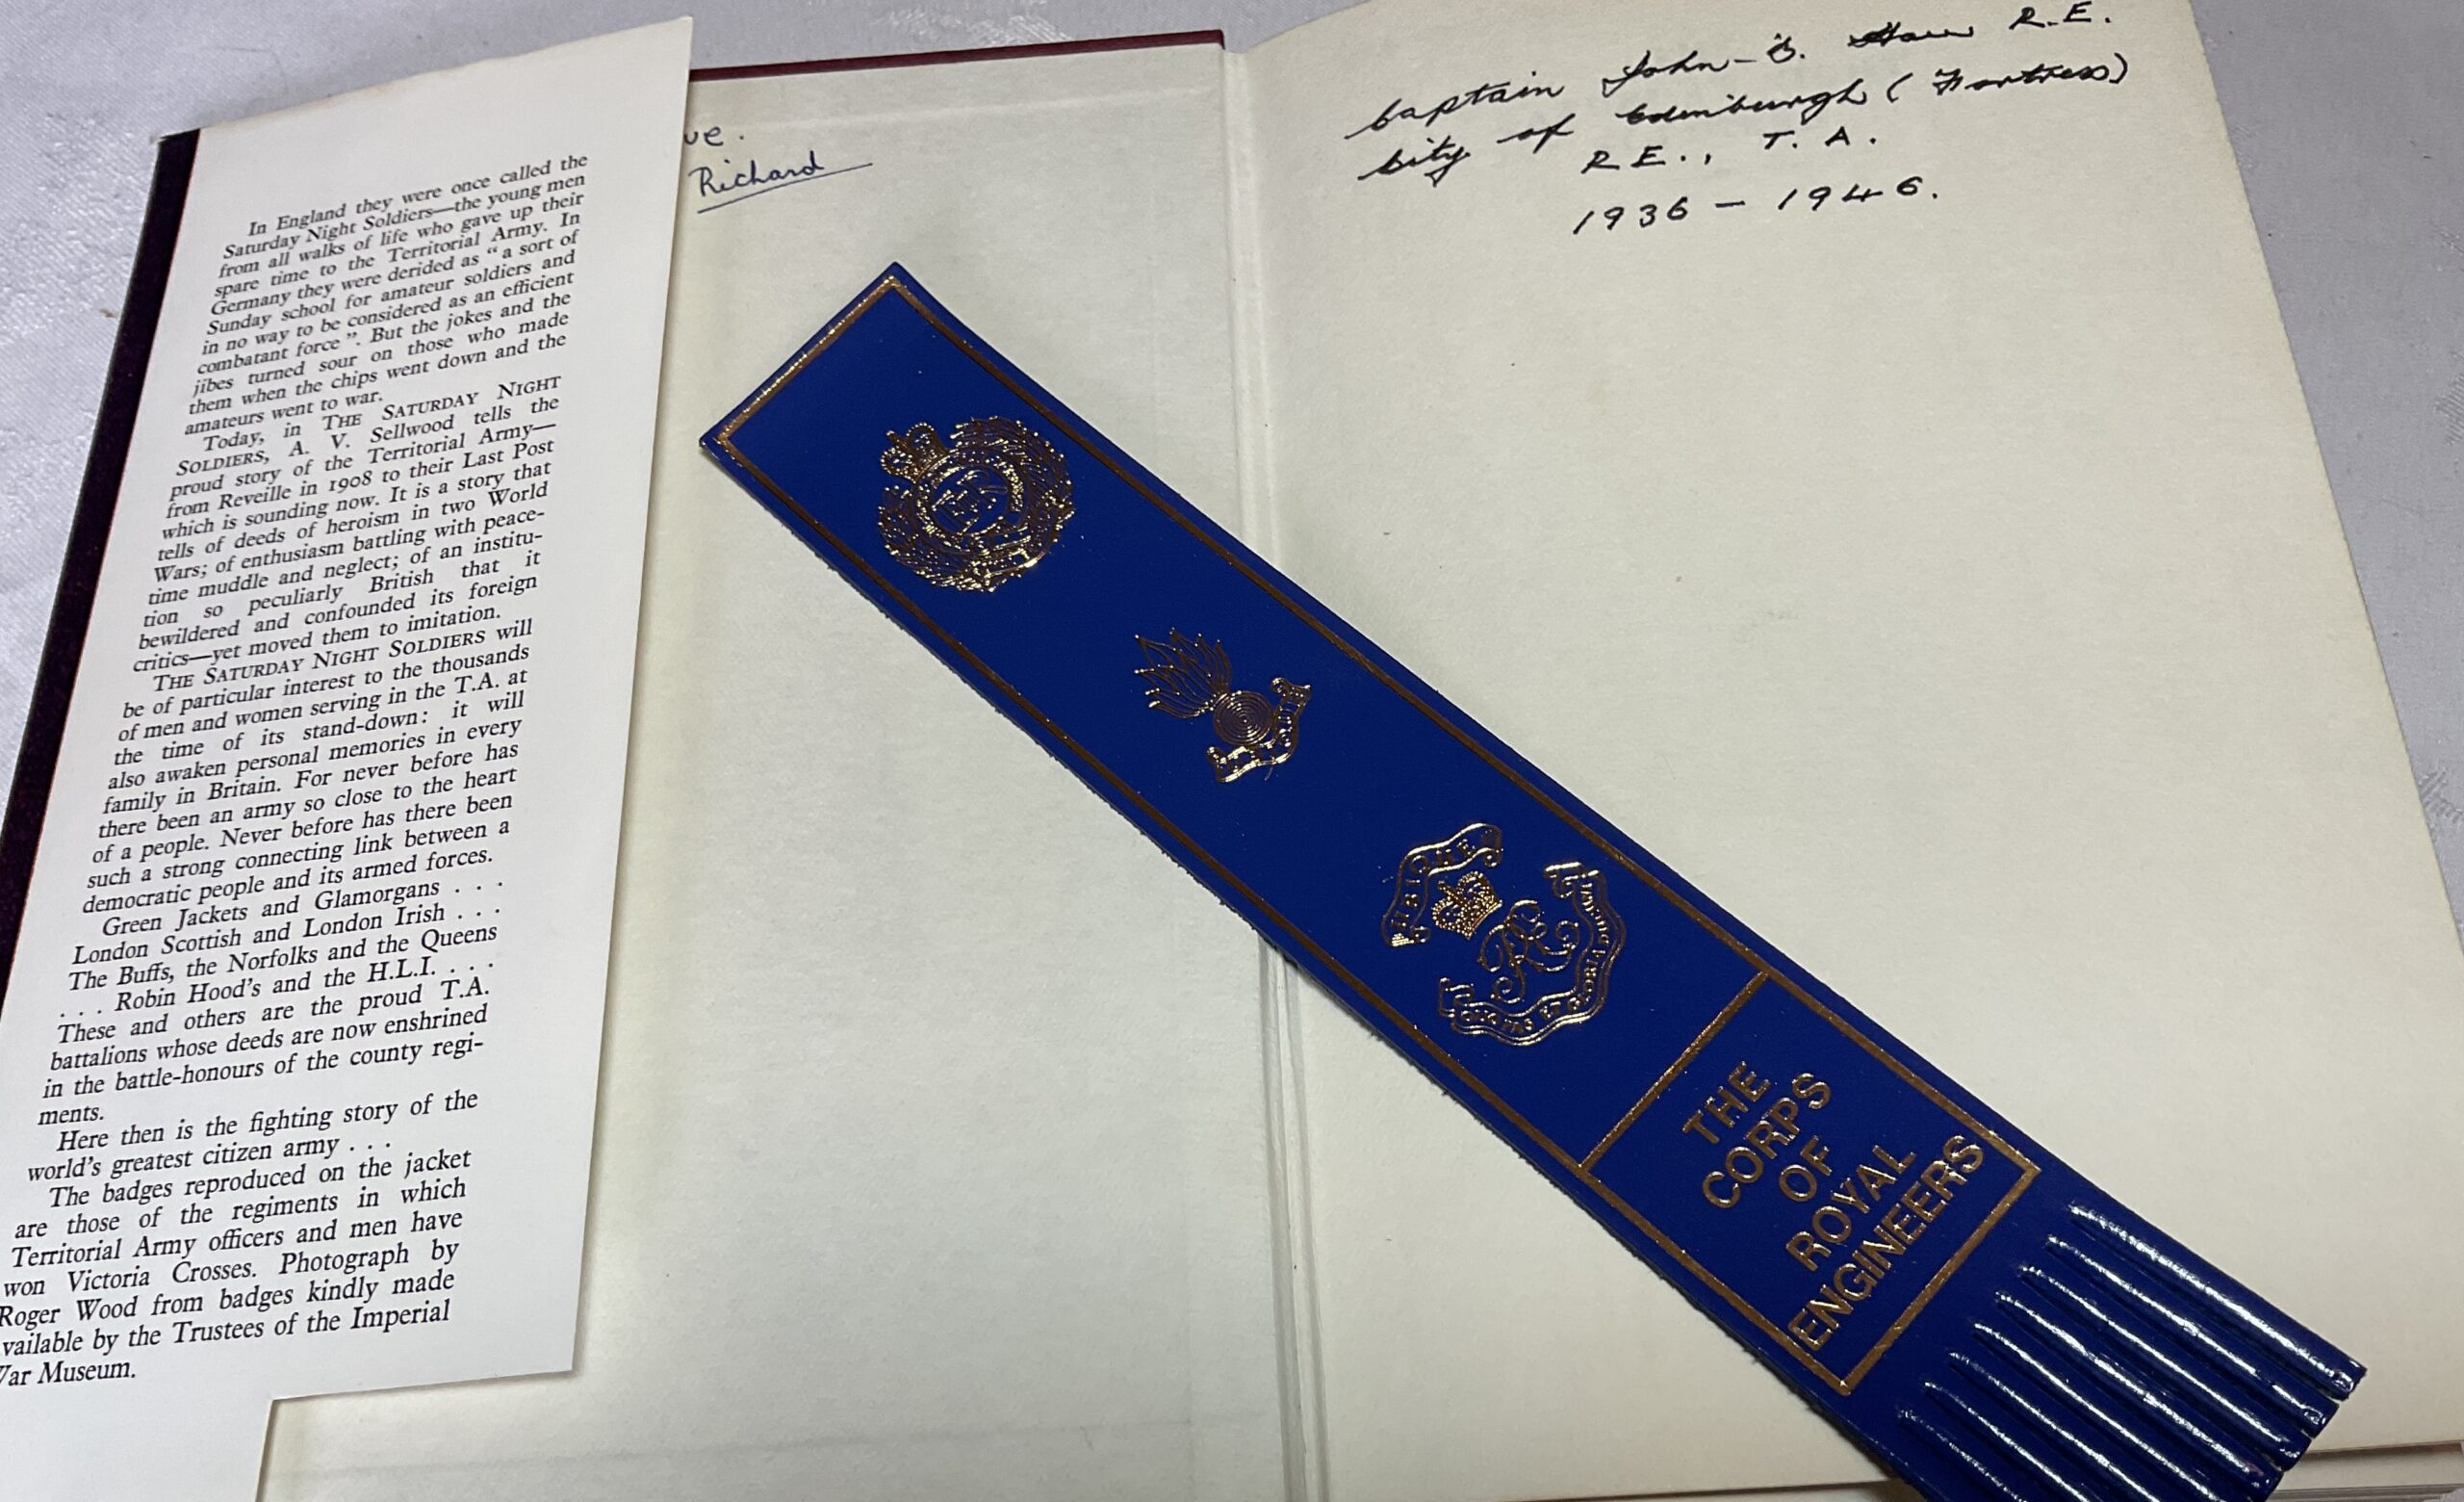 In England they were once called the
Saturday Night Soldiers—the young men
from all walks of life who gave up their
spare time to the Territorial Army. In
Germany they were derided as "a sort of
Sunday school for amateur soldiers and
in no way to be considered as an efficient
combatant force". But the jokes and the
jibes turned sour on those who made
them when the chips went down and the
amateurs went to war.
Today, in THE SATURDAY NIGHT
SOLDIERS, A. V. Sellwood tells the
proud story of the Territorial Army—
from Reveille in 1908 to their Last Post
which is sounding now. It is a story that
tells of deeds of heroism in two World
Wars; of enthusiasm battling with peace-
time muddle and neglect; of an institu-
tion so peculiarly British that it
bewildered and confounded its foreign
critics—yet moved them to imitation.
THE SATURDAY NIGHT SOLDIERS will
be of particular interest to the thousands
of men and women serving in the T.A. at
the time of its stand-down: it will
also awaken personal memories in every
family in Britain. For never before has
there been an army so close to the heart
of a people. Never before has there been
such a strong connecting link between a
democratic people and its armed forces.
Green Jackets and Glamorgans . . .
London Scottish and London Irish . . .
The Buffs, the Norfolks and the Queens
. . . Robin Hood's and the H.L.I. . . .
These and others are the proud T.A.
battalions whose deeds are now enshrined
in the battle-honours of the county regi-
ments.
Here then is the fighting story of the
world's greatest citizen army . . .
The badges reproduced on the jacket
are those of the regiments in which
Territorial Army officers and men have
won Victoria Crosses. Photograph by
Roger Wood from badges kindly made
vailable by the Trustees of the Imperial
War Museum.
ue.
Richard
Captain John R.E.
City of Edinburgh (Fortress)
R.E., T.A.
1936 - 1946.
UBIQUE
QUO FAS ET GLORIA DUCUNT
THE
CORPS
OF
ROYAL
ENGINEERS